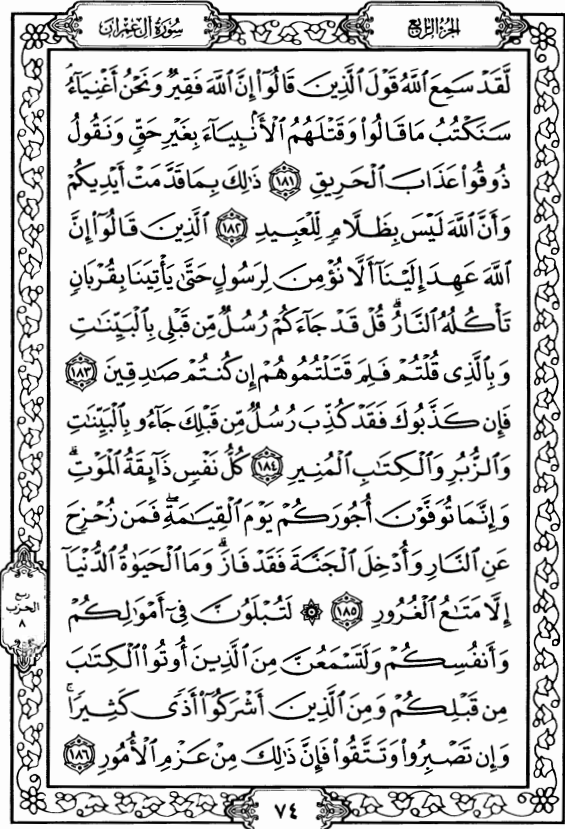 سُورَةُ آلِ عِمْرَان
الجُزْءُ الرَّابِعُ
لَّقَدْ سَمِعَ ٱللَّهُ قَوْلَ ٱلَّذِينَ قَالُوٓا۟ إِنَّ ٱللَّهَ فَقِيرٌ وَنَحْنُ أَغْنِيَآءُ
سَنَكْتُبُ مَا قَالُوا۟ وَقَتْلَهُمُ ٱلْأَنۢبِيَآءَ بِغَيْرِ حَقٍّ وَنَقُولُ
ذُوقُوا۟ عَذَابَ ٱلْحَرِيقِ ١٨١ ذَٰلِكَ بِمَا قَدَّمَتْ أَيْدِيكُمْ
وَأَنَّ ٱللَّهَ لَيْسَ بِظَلَّامٍ لِّلْعَبِيدِ ١٨٢ ٱلَّذِينَ قَالُوٓا۟ إِنَّ
ٱللَّهَ عَهِدَ إِلَيْنَآ أَلَّا نُؤْمِنَ لِرَسُولٍ حَتَّىٰ يَأْتِيَنَا بِقُرْبَانٍ
تَأْكُلُهُ ٱلنَّارُ ۗ قُلْ قَدْ جَآءَكُمْ رُسُلٌ مِّن قَبْلِى بِٱلْبَيِّنَٰتِ
وَبِٱلَّذِى قُلْتُمْ فَلِمَ قَتَلْتُمُوهُمْ إِن كُنتُمْ صَٰدِقِينَ ١٨٣
فَإِن كَذَّبُوكَ فَقَدْ كُذِّبَ رُسُلٌ مِّن قَبْلِكَ جَآءُو بِٱلْبَيِّنَٰتِ
وَٱلزُّبُرِ وَٱلْكِتَٰبِ ٱلْمُنِيرِ ١٨٤ كُلُّ نَفْسٍ ذَآئِقَةُ ٱلْمَوْتِ ۗ
وَإِنَّمَا تُوَفَّوْنَ أُجُورَكُمْ يَوْمَ ٱلْقِيَٰمَةِ ۖ فَمَن زُحْزِحَ
عَنِ ٱلنَّارِ وَأُدْخِلَ ٱلْجَنَّةَ فَقَدْ فَازَ ۗ وَمَا ٱلْحَيَوٰةُ ٱلدُّنْيَآ
إِلَّا مَتَٰعُ ٱلْغُرُورِ ١٨٥ ۞ لَتُبْلَوُنَّ فِىٓ أَمْوَٰلِكُمْ
وَأَنفُسِكُمْ وَلَتَسْمَعُنَّ مِنَ ٱلَّذِينَ أُوتُوا۟ ٱلْكِتَٰبَ
مِن قَبْلِكُمْ وَمِنَ ٱلَّذِينَ أَشْرَكُوٓا۟ أَذًى كَثِيرًا ۚ
وَإِن تَصْبِرُوا۟ وَتَتَّقُوا۟ فَإِنَّ ذَٰلِكَ مِنْ عَزْمِ ٱلْأُمُورِ ١٨٦
ربع
الحزب
٨
٧٤